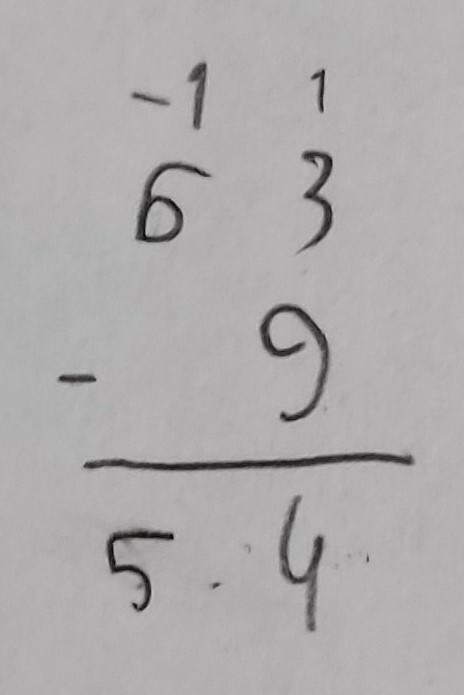 -1 1
6 3
- 9
5 4